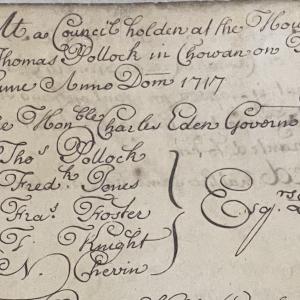 At a Council holden at the Ho
Thomas Pollock in Chowan on
June Anno Dom 1717
e Honble Charles Eden Governo
Thos Pollock
Fredk Jones
Fras Foster
T. Knight
N. Chevin
Esqrs